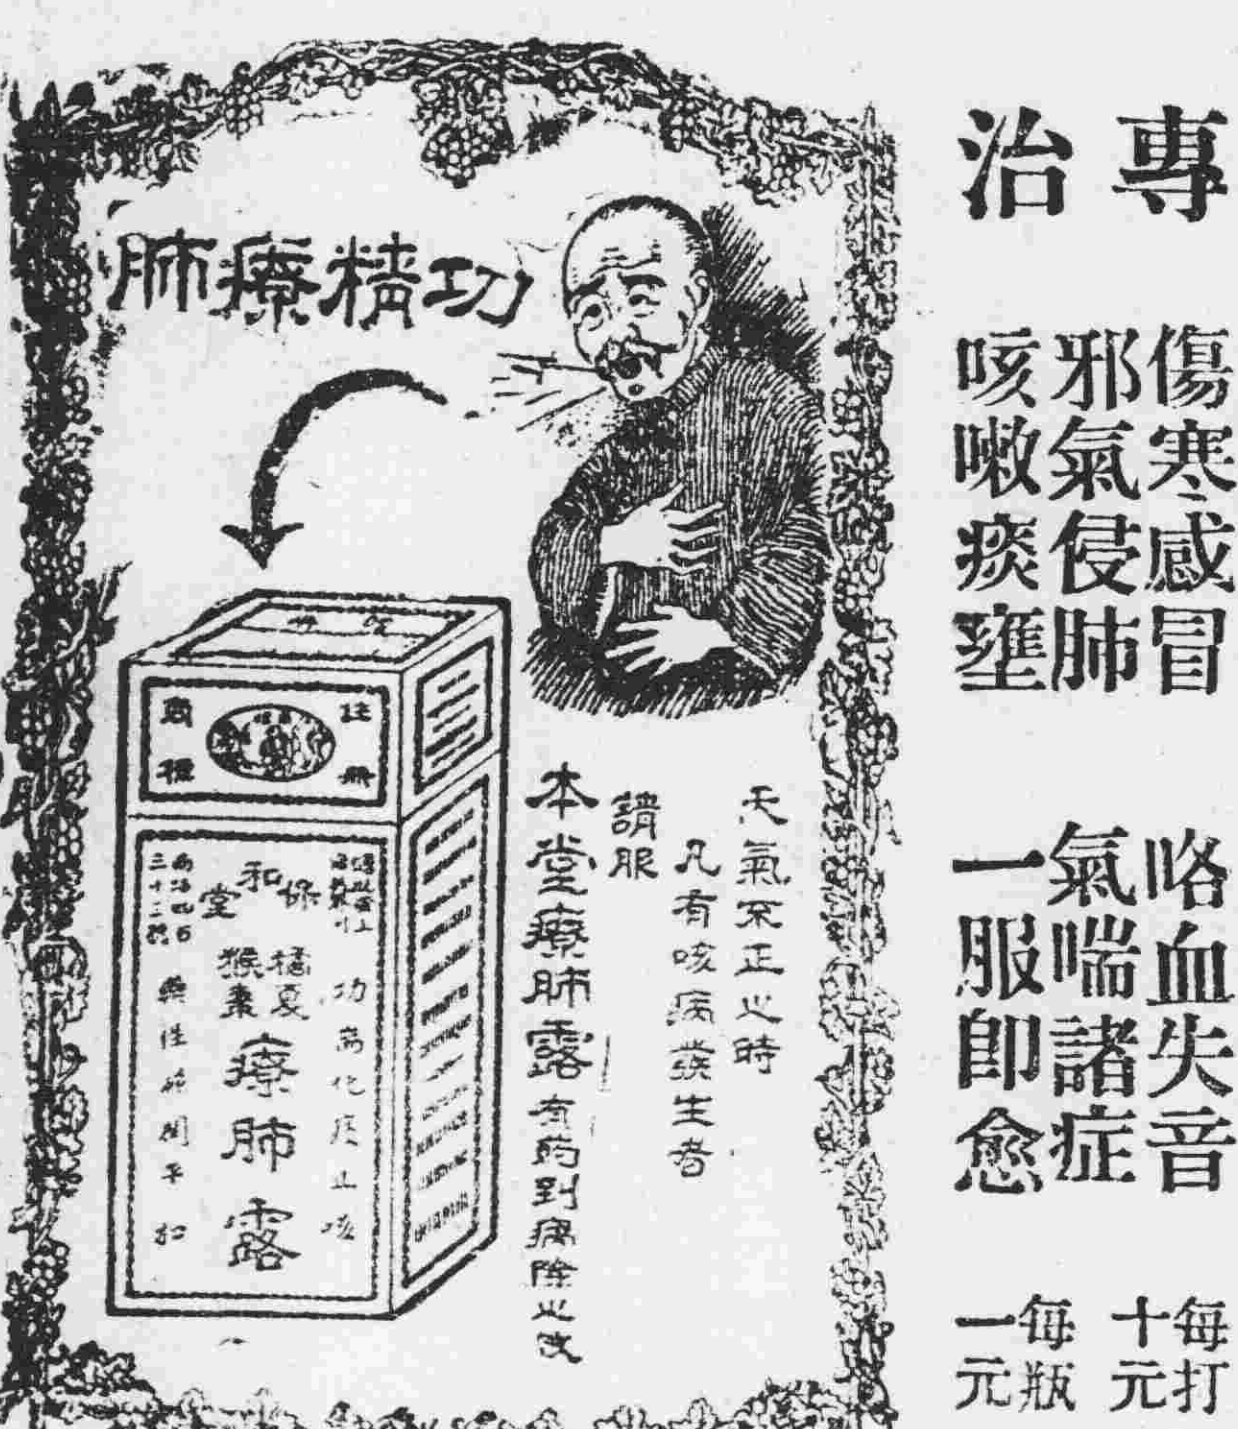 專治
傷寒感冒
邪氣侵肺
咳嗽痰壅
咯血失音
氣喘諸症
一服即愈
每打十元
每瓶一元
功精療肺
天氣不正之時
凡有咳病發生者
請服
本堂療肺露有药到病除之功
註冊
商標
保和堂
功高化痰止咳
橘夏
猴棗
療肺露
藥性純潤平和
三十三號